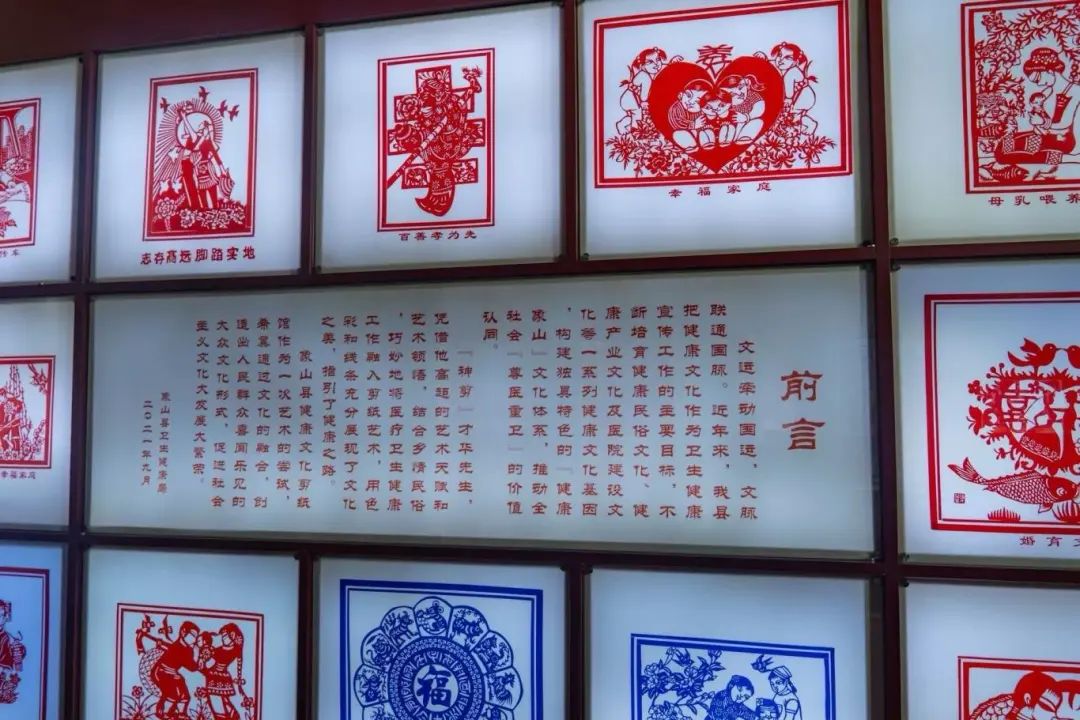 志存高远脚踏实地
百善孝为先
幸福家庭
母乳喂养
幸福家庭
前言
文运牵动国运，文脉
联通国脉。近年来，我县
把健康文化作为卫生健康
宣传工作的主要目标，不
断培育健康民俗文化、健
康产业文化及医院建设文
化等一系列健康文化基因
，构建独具特色的『健康
象山』文化体系，推动全
社会『尊医重卫』的价值
认同。
『神剪』才华先生，
凭借他高超的艺术天赋和
艺术顿悟，结合乡情民俗
，巧妙地将医疗卫生健康
工作融入剪纸艺术，用色
彩和线条充分展现了文化
之美，指引了健康之路。
象山县健康文化剪纸
馆作为一次艺术的尝试，
希冀通过文化的融合，创
造出人民群众喜闻乐见的
大众文化形式，促进社会
主义文化大发展大繁荣。
象山县卫生健康局
二〇二一年九月
囍
婚育
福